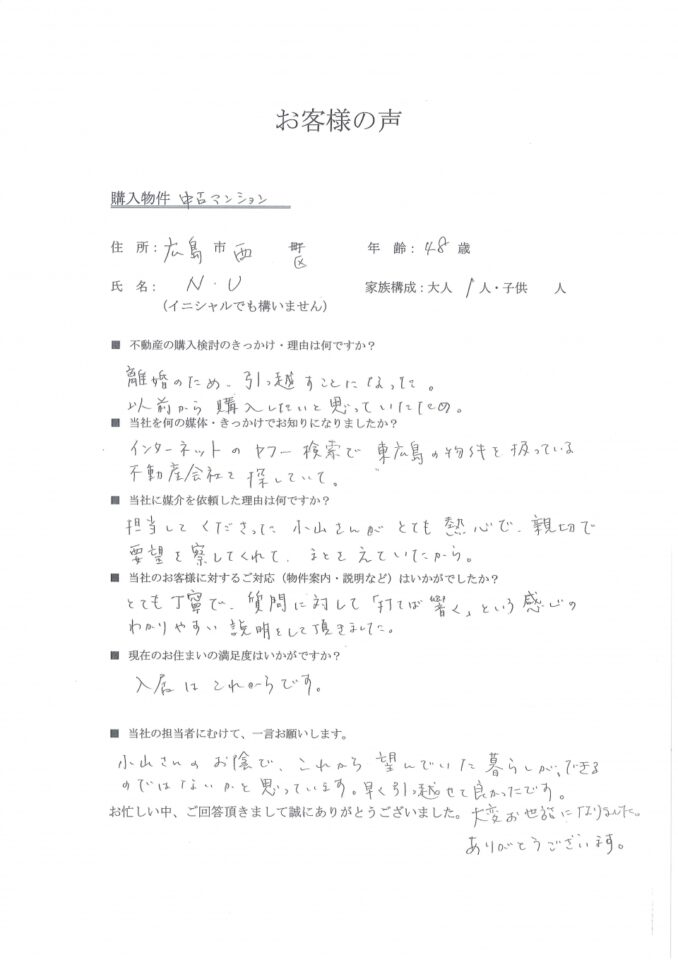 お客様の声
購入物件 中古マンション
住 所：広島市西 町 区 年 齢：48歳
氏 名： N・U 家族構成：大人 1人・子供 人
(イニシャルでも構いません)
■ 不動産の購入検討のきっかけ・理由は何ですか？
離婚のため、引っ越すことになった。
以前から購入したいと思っていたため。
■ 当社を何の媒体・きっかけでお知りになりましたか？
インターネットのヤフー検索で東広島の物件を扱っている
不動産会社を探していて。
■ 当社に媒介を依頼した理由は何ですか？
担当してくださった小山さんがとても熱心で、親切で
要望を察してくれて、まとをえていたから。
■ 当社のお客様に対するご対応（物件案内・説明など）はいかがでしたか？
とても丁寧で、質問に対して「打てば響く」という感じの
わかりやすい説明をして頂きました。
■ 現在のお住まいの満足度はいかがですか？
入居はこれからです。
■ 当社の担当者にむけて、一言お願いします。
小山さんのお陰で、これから望んでいた暮らしが、できる
のではないかと思っています。早く引っ越せて良かったです。
お忙しい中、ご回答頂きまして誠にありがとうございました。大変お世話になりました。
ありがとうございます。